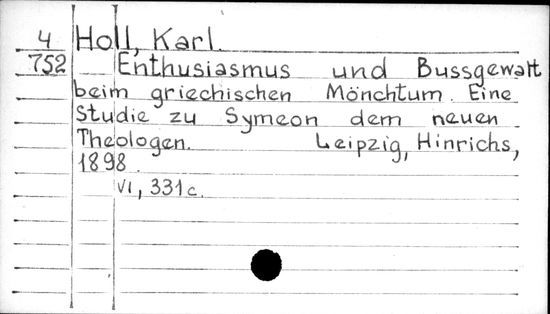 4 Holl, Karl.
752 Enthusiasmus und Bussgewalt
beim griechischen Mönchtum. Eine
Studie zu Symeon dem neuen
Theologen. Leipzig, Hinrichs,
1898.
VI, 331 c.